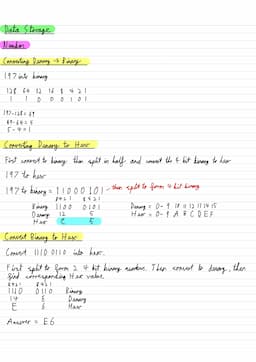 Data Storage
Number
Converting Denary → Binary
197 into binary
128 64 32 16 8 4 2 1
1 1 0 0 0 1 0 1
197-128 = 69
69-64 = 5
5-4 = 1
Converting Denary to Hex
First convert to binary then split in half and convert the 4 bit binary to hex
197 to hex
197 to binary = 11000101 - then split to form 4 bit binary
8 4 2 1 8 4 2 1
Binary 1100 0101 Denary = 0-9 10 11 12 13 14 15
Denary 12 5 Hex = 0-9 A B C D E F
Hex C 5
Convert Binary to Hex
Convert 1110 0110 into hex.
First split to form 2 4 bit binary numbers. Then convert to denary, then
find corresponding Hex value.
8421 8421
1110 0110 Binary
14 6 Denary
E 6 Hex
Answer = E6